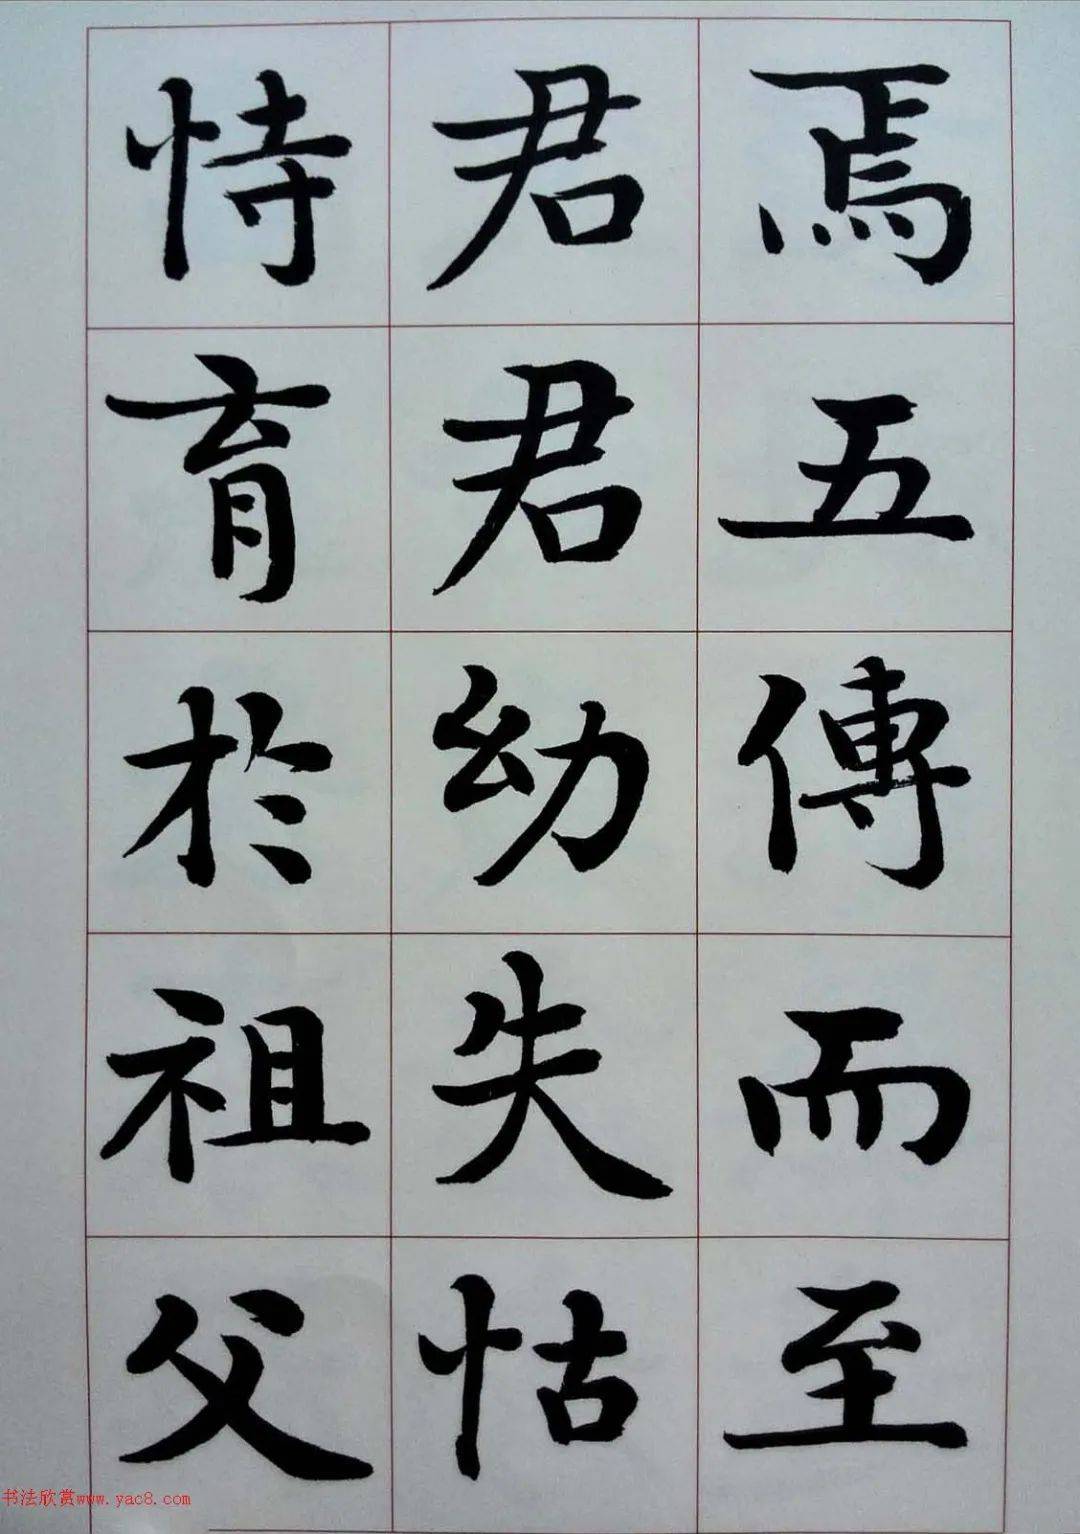 焉五傳而至
君君幼失怙
恃育於祖父
书法欣赏www.yac8.com